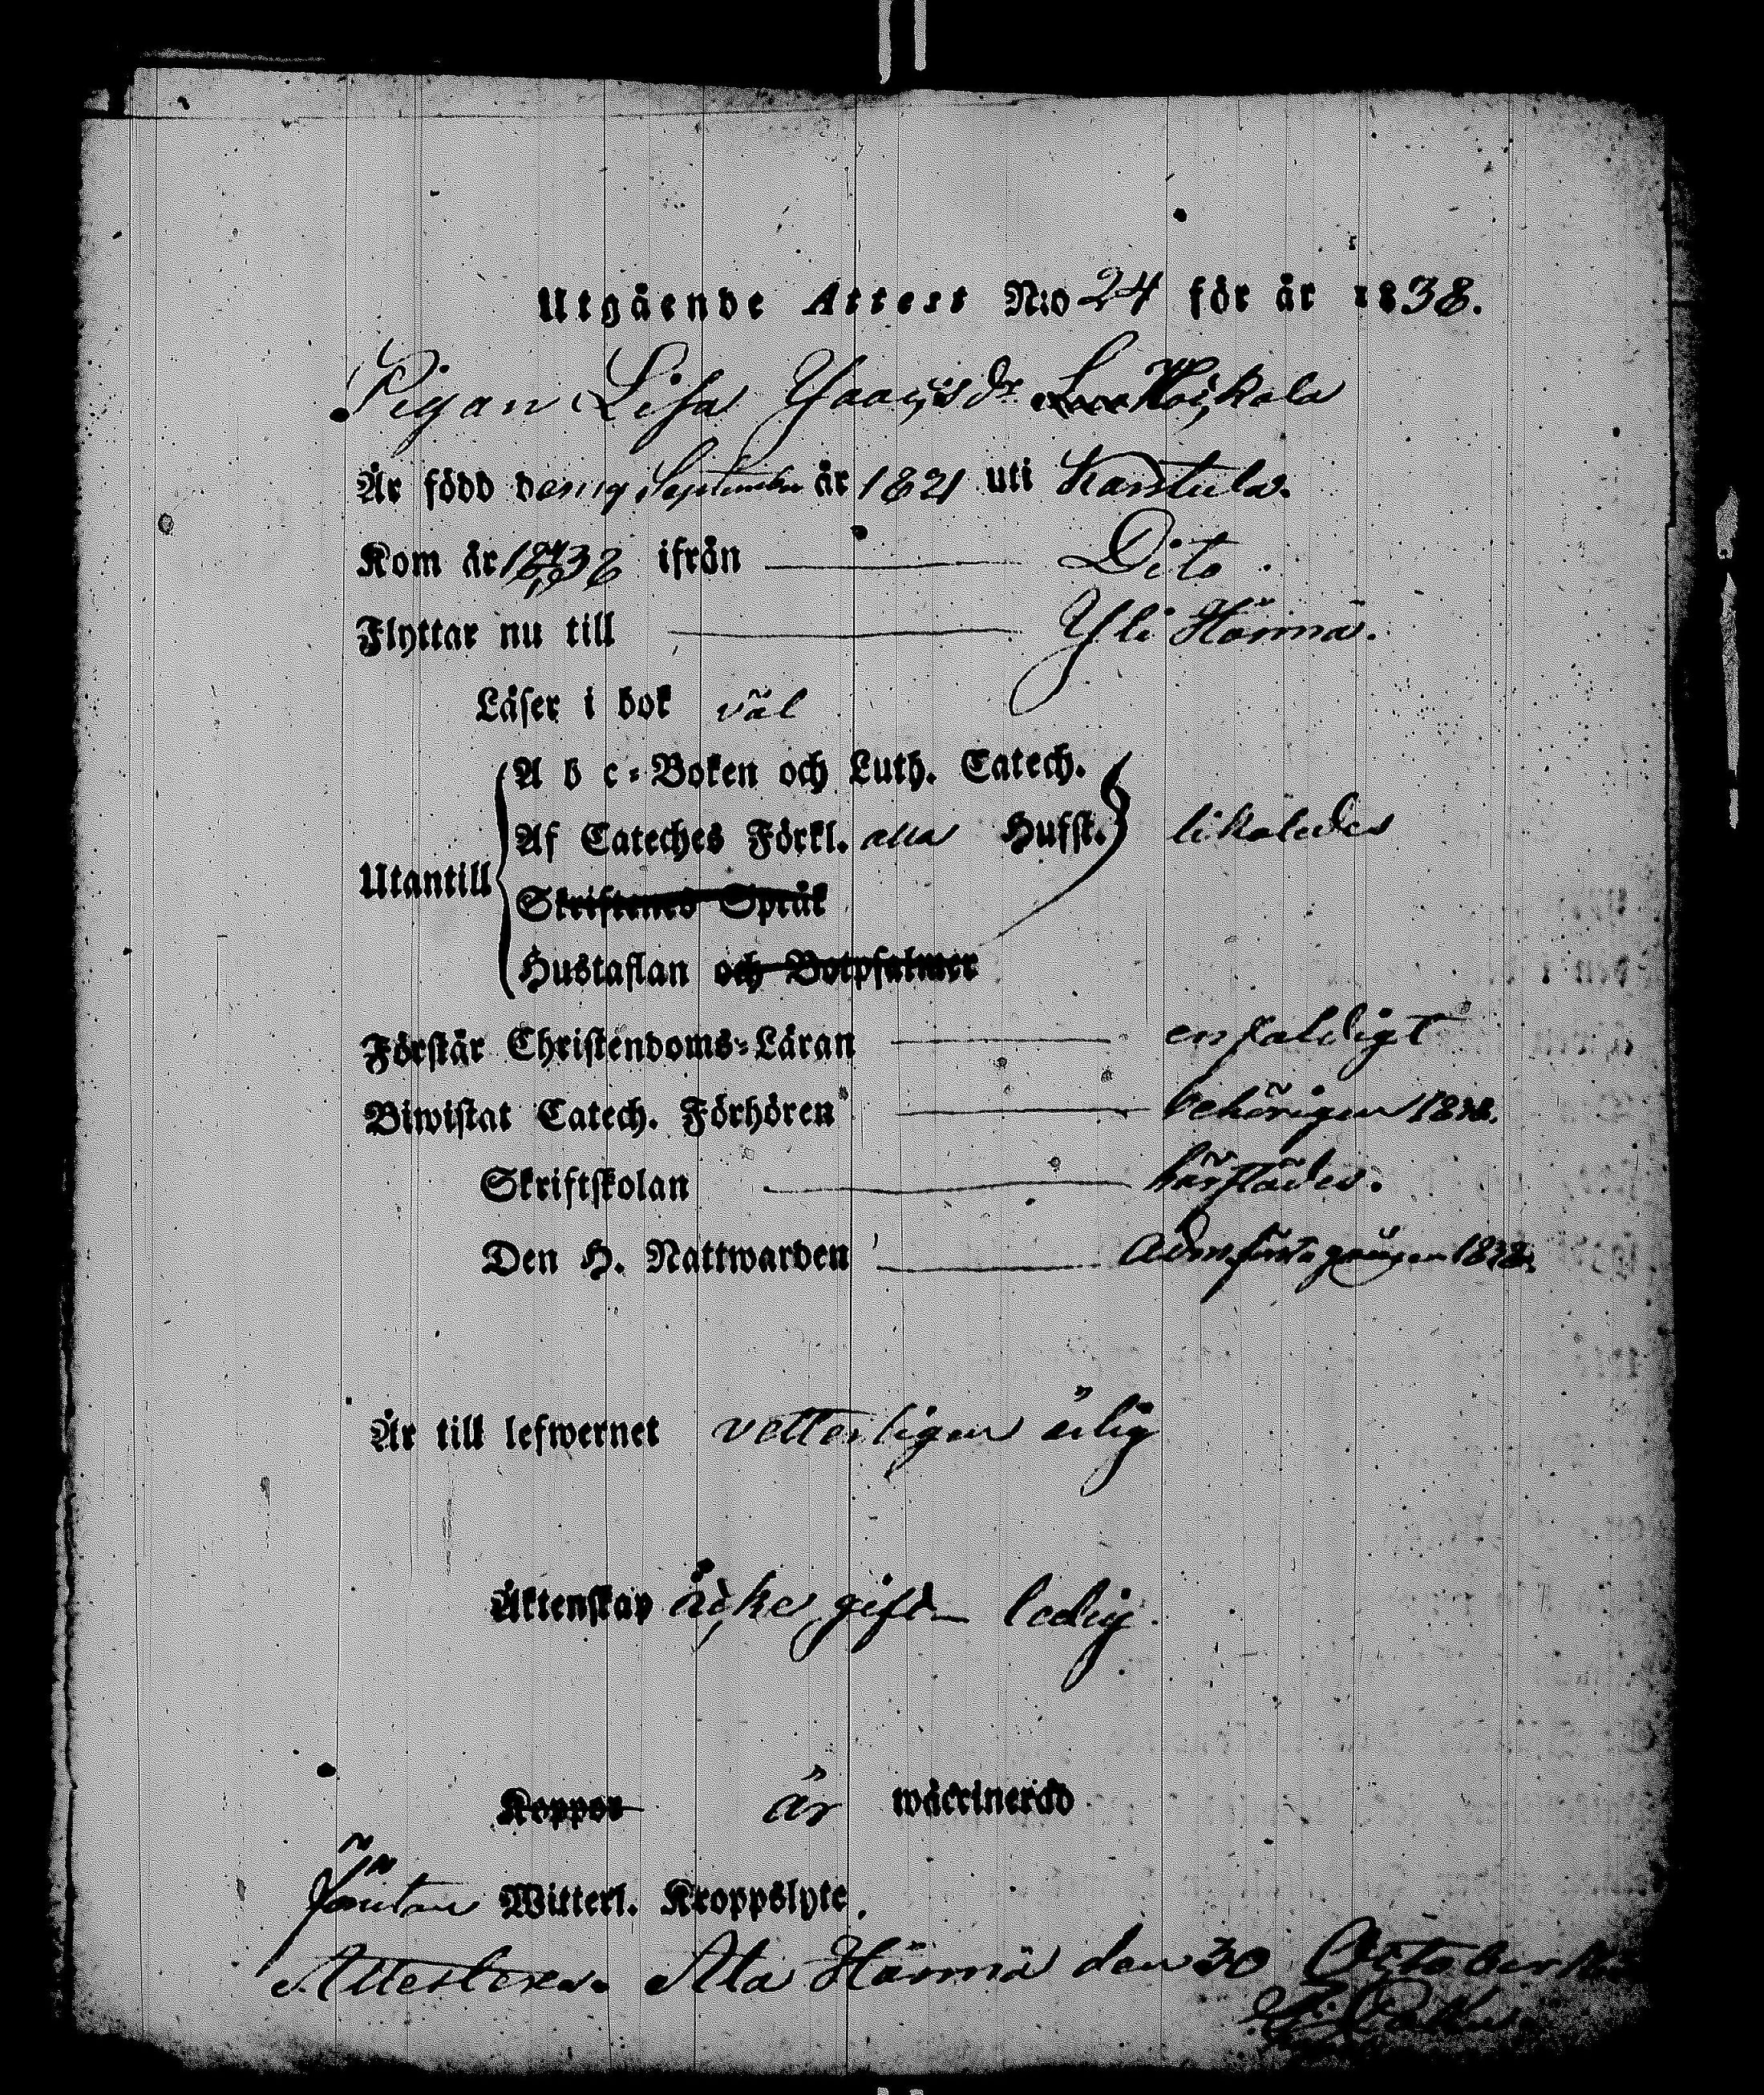 Utgående Attest N:o 24 för år 1838.
Pigan Lisa Isaacsdr Hoikala
Är född den 19 September år 1821 uti Karstula.
Kom år 1838 ifrån Dito.
Flyttar nu till Yli Härmä.
Läser i bok väl
A b c-Boken och Luth. Catech.
Af Cateches Förkl. alla Hufst. likaledes
Utantill
Skriftenes Språk
Hustaflan och Botpsalmer
Förstår Christendoms-Läran enfaldigt
Biwistat Catech. Förhören behörigen 1838.
Skriftskolan härstädes.
Den H. Nattwarden Adm. första gången 1838.
Är till lefwernet vetterligen ärlig
Äktenskap icke gift ledig.
Koppor är waccinerad
Witterl. Kroppslyte.
Attesterar. Ala Härmä den 30 October